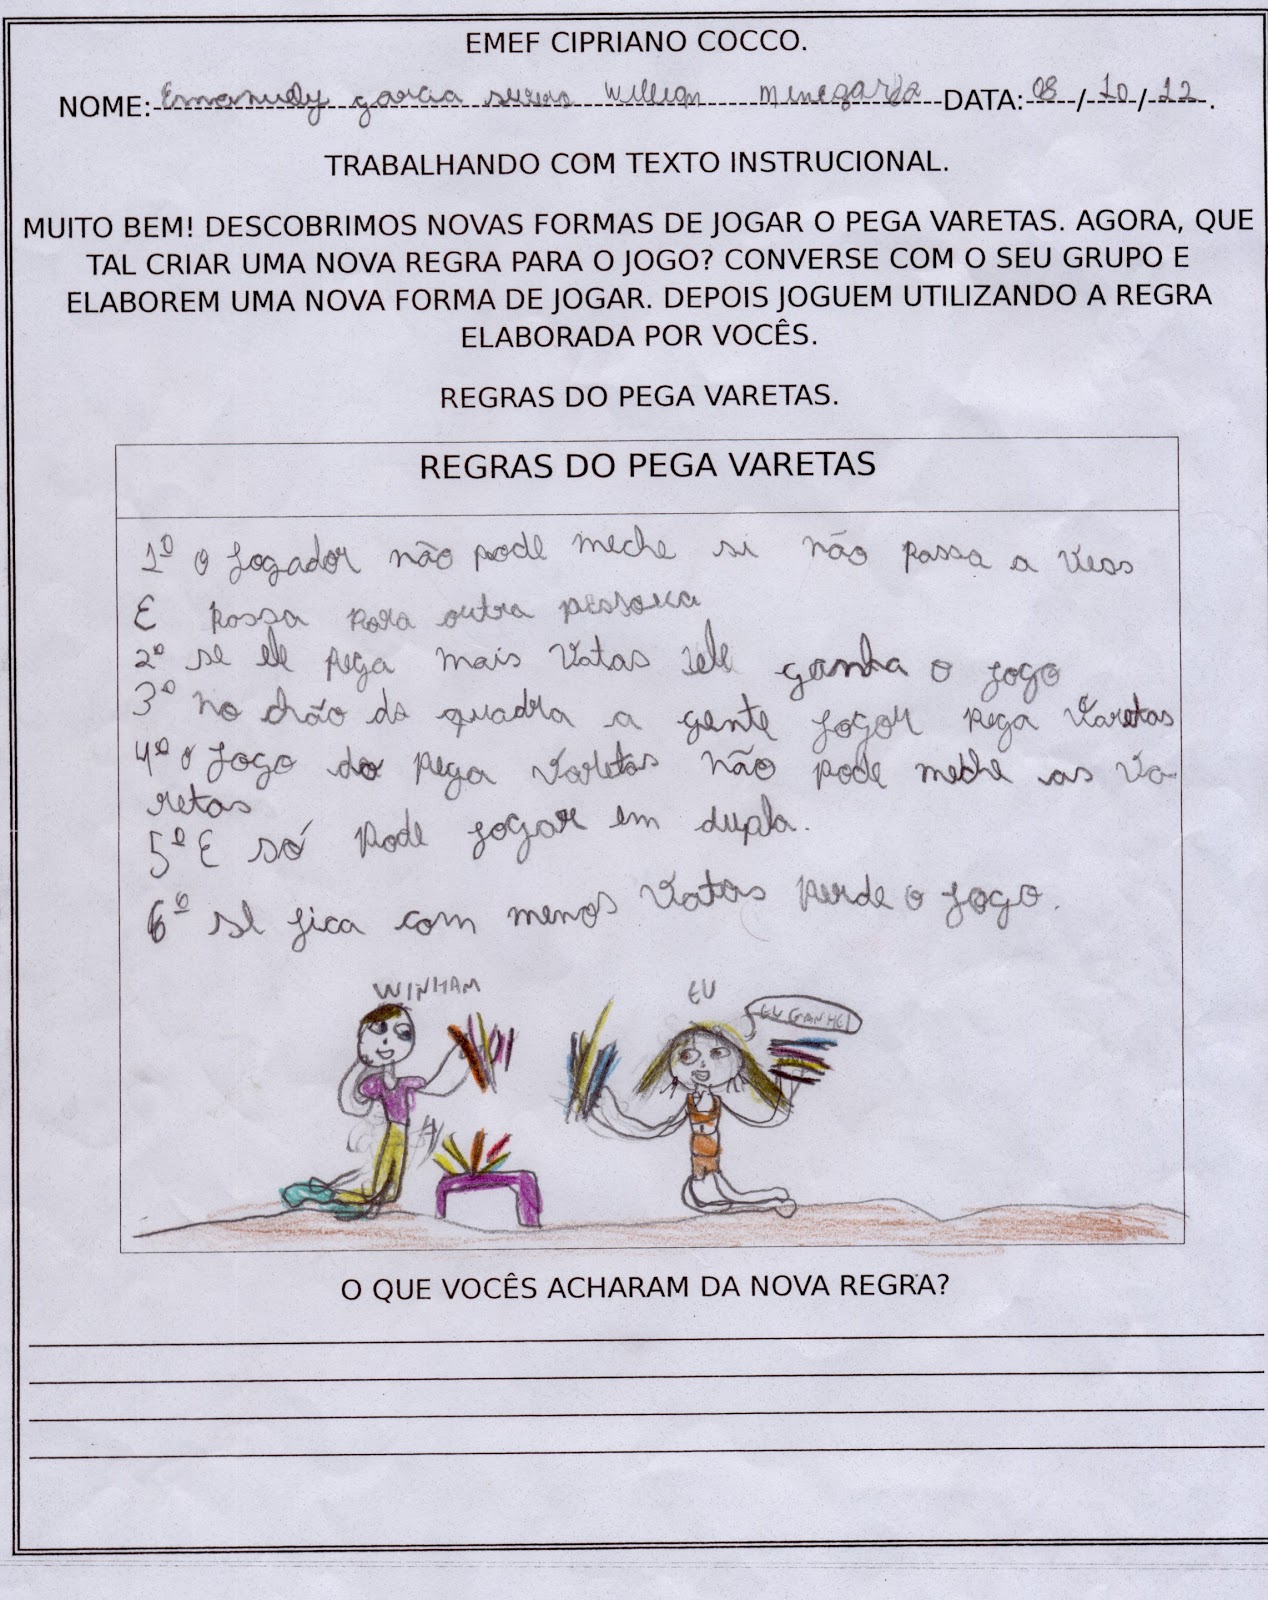 EMEF CIPRIANO COCCO.
NOME: Emanuely garcia Willian DATA: 08/10/12.
TRABALHANDO COM TEXTO INSTRUCIONAL.
MUITO BEM! DESCOBRIMOS NOVAS FORMAS DE JOGAR O PEGA VARETAS. AGORA, QUE
TAL CRIAR UMA NOVA REGRA PARA O JOGO? CONVERSE COM O SEU GRUPO E
ELABOREM UMA NOVA FORMA DE JOGAR. DEPOIS JOGUEM UTILIZANDO A REGRA
ELABORADA POR VOCÊS.
REGRAS DO PEGA VARETAS.
REGRAS DO PEGA VARETAS
1º o jogador não pode meche si não passa a vess
E passa para outra pessoua
2º se ele pega mais vatas ele ganha o jogo
3º no chão da quadra a gente jogar pega varetas
4º o jogo do pega varetas não pode meche as va-
retas
5º E só pode jogar em dupla.
6º se fica com menos vatas perde o jogo.
WINHAM
EU
EU GANHEI
O QUE VOCÊS ACHARAM DA NOVA REGRA?